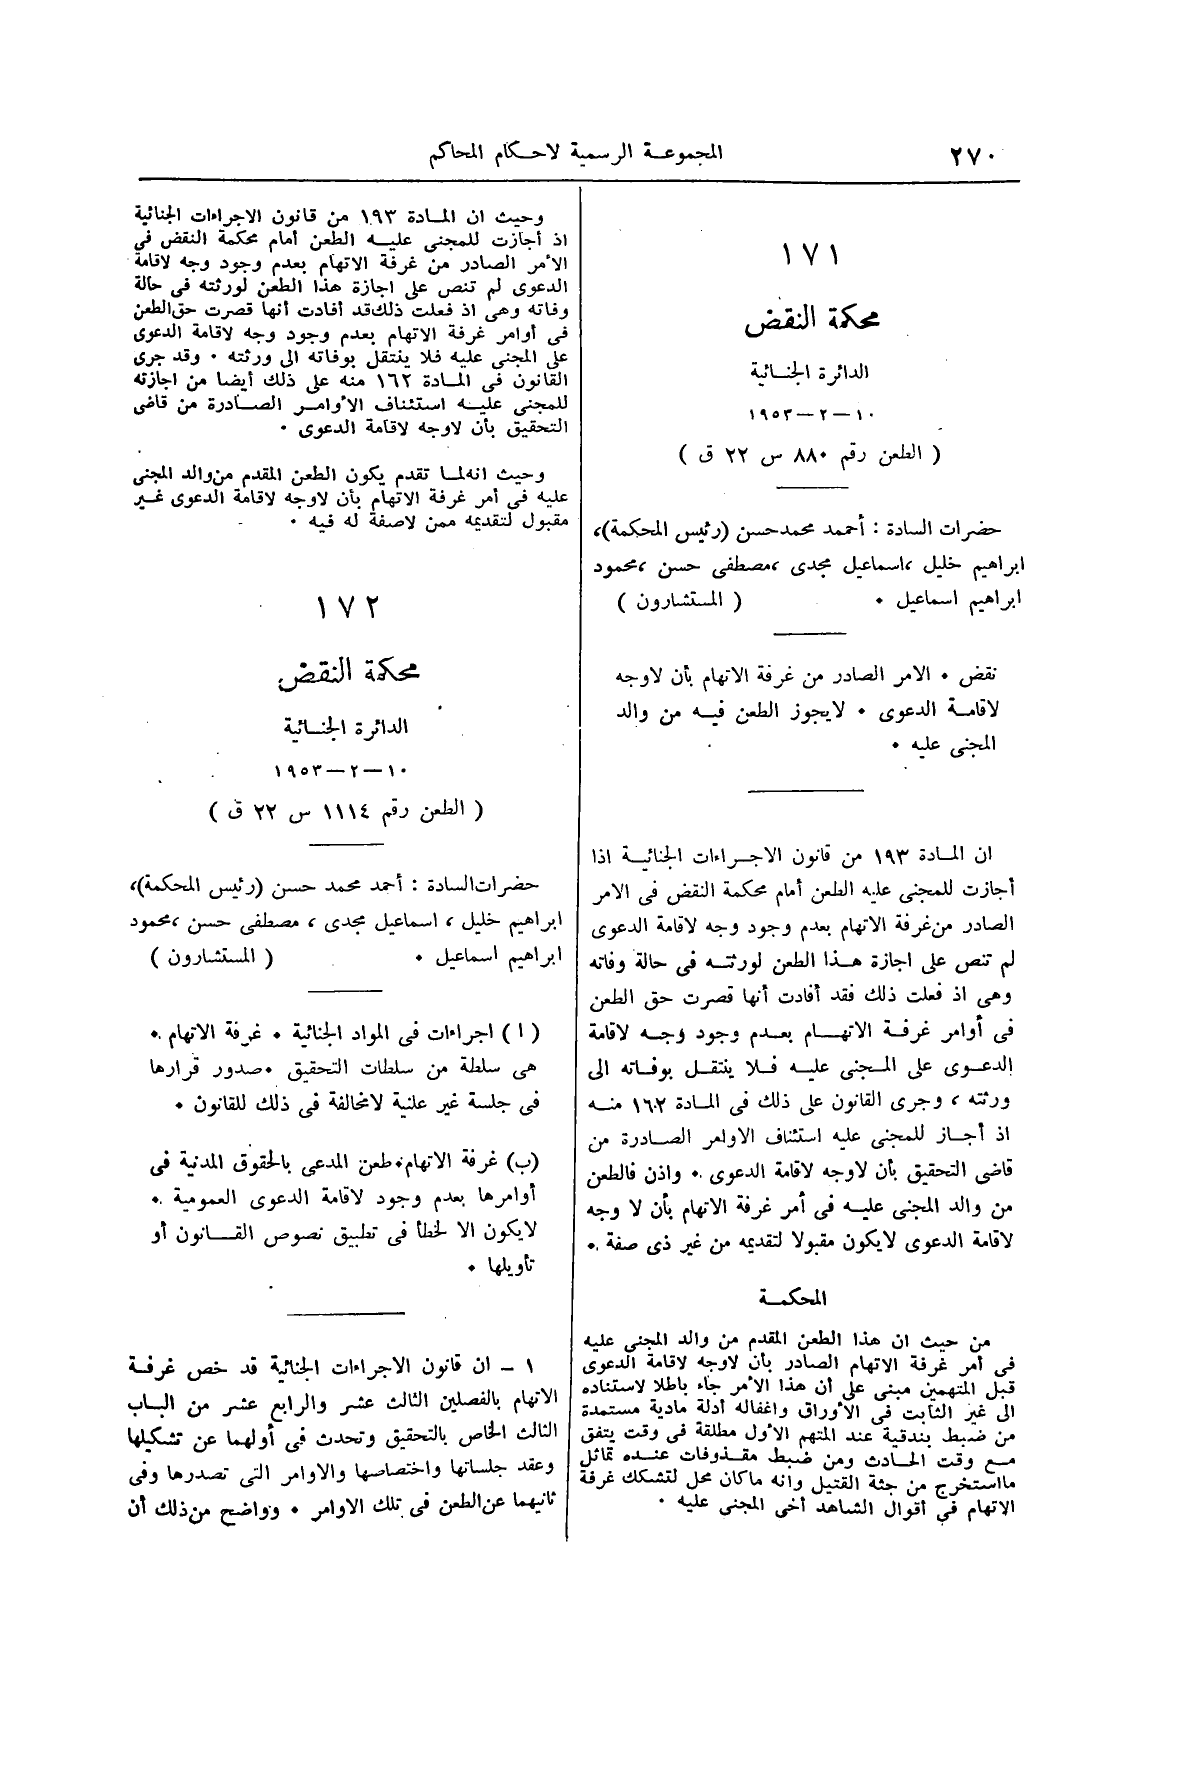 ٢٧٠
المجموعة الرسمية لاحكام المحاكم
١٧١
محكمة النقض
الدائرة الجنائية
١٠ - ٢ - ١٩٥٣
( الطعن رقم ٨٨٠ س ٢٢ ق )
حضرات السادة : أحمد محمد حسن (رئيس المحكمة)،
ابراهيم خليل ، اسماعيل مجدى ، مصطفى حسن ، محمود
ابراهيم اسماعيل . ( المستشارون )
نقض . الامر الصادر من غرفة الاتهام بأن لاوجه
لاقامة الدعوى . لايجوز الطعن فيه من والد
المجنى عليه .
ان المادة ١٩٣ من قانون الاجراءات الجنائية اذا
أجازت للمجنى عليه الطعن أمام محكمة النقض فى الامر
الصادر من غرفة الاتهام بعدم وجود وجه لاقامة الدعوى
لم تنص على اجازة هذا الطعن لورثته فى حالة وفاته
وهى اذ فعلت ذلك فقد أفادت أنها قصرت حق الطعن
فى أوامر غرفة الاتهام بعدم وجود وجه لاقامة
الدعوى على المجنى عليه فلا ينتقل بوفاته الى
ورثته ، وجرى القانون على ذلك فى المادة ١٦٢ منه
اذ أجاز للمجنى عليه استئناف الاوامر الصادرة من
قاضى التحقيق بأن لاوجه لاقامة الدعوى . واذن فالطعن
من والد المجنى عليه فى أمر غرفة الاتهام بأن لا وجه
لاقامة الدعوى لايكون مقبولا لتقديمه من غير ذى صفة .
المحكمة
من حيث ان هذا الطعن المقدم من والد المجنى عليه
فى أمر غرفة الاتهام الصادر بأن لاوجه لاقامة الدعوى
قبل المتهمين مبنى على أن هذا الأمر جاء باطلا لاستناده
الى غير الثابت فى الأوراق واغفاله أدلة مادية مستمدة
من ضبط بندقية عند المتهم الأول مطلقة فى وقت يتفق
مع وقت الحادث ومن ضبط مقذوفات عنده تماثل
مااستخرج من جثة القتيل وانه ماكان محل لتشكك غرفة
الاتهام فى أقوال الشاهد أخى المجنى عليه .
وحيث ان المادة ١٩٣ من قانون الاجراءات الجنائية
اذ أجازت للمجنى عليه الطعن أمام محكمة النقض فى
الأمر الصادر من غرفة الاتهام بعدم وجود وجه لاقامة
الدعوى لم تنص على اجازة هذا الطعن لورثته فى حالة
وفاته وهى اذ فعلت ذلك قد أفادت أنها قصرت حق الطعن
فى أوامر غرفة الاتهام بعدم وجود وجه لاقامة الدعوى
على المجنى عليه فلا ينتقل بوفاته الى ورثته . وقد جرى
القانون فى المادة ١٦٢ منه على ذلك أيضا من اجازته
للمجنى عليه استئناف الأوامر الصادرة من قاضى
التحقيق بأن لاوجه لاقامة الدعوى .
وحيث انه لما تقدم يكون الطعن المقدم من والد المجنى
عليه فى أمر غرفة الاتهام بأن لاوجه لاقامة الدعوى غير
مقبول لتقديمه ممن لاصفة له فيه .
١٧٢
محكمة النقض
الدائرة الجنائية
١٠ - ٢ - ١٩٥٣
( الطعن رقم ١١١٤ س ٢٢ ق )
حضرات السادة : أحمد محمد حسن (رئيس المحكمة)،
ابراهيم خليل ، اسماعيل مجدى ، مصطفى حسن ، محمود
ابراهيم اسماعيل . ( المستشارون )
( ا ) اجراءات فى المواد الجنائية . غرفة الاتهام .
هى سلطة من سلطات التحقيق . صدور قرارها
فى جلسة غير علنية لامخالفة فى ذلك للقانون .
(ب) غرفة الاتهام . طعن المدعى بالحقوق المدنية فى
أوامرها بعدم وجود لاقامة الدعوى العمومية .
لايكون الا لخطأ فى تطبيق نصوص القانون أو
تأويلها .
١ - ان قانون الاجراءات الجنائية قد خص غرفة
الاتهام بالفصلين الثالث عشر والرابع عشر من الباب
الثالث الخاص بالتحقيق وتحدث فى أولهما عن تشكيلها
وعقد جلساتها واختصاصها والاوامر التى تصدرها وفى
ثانيهما عن الطعن فى تلك الاوامر . وواضح من ذلك أن